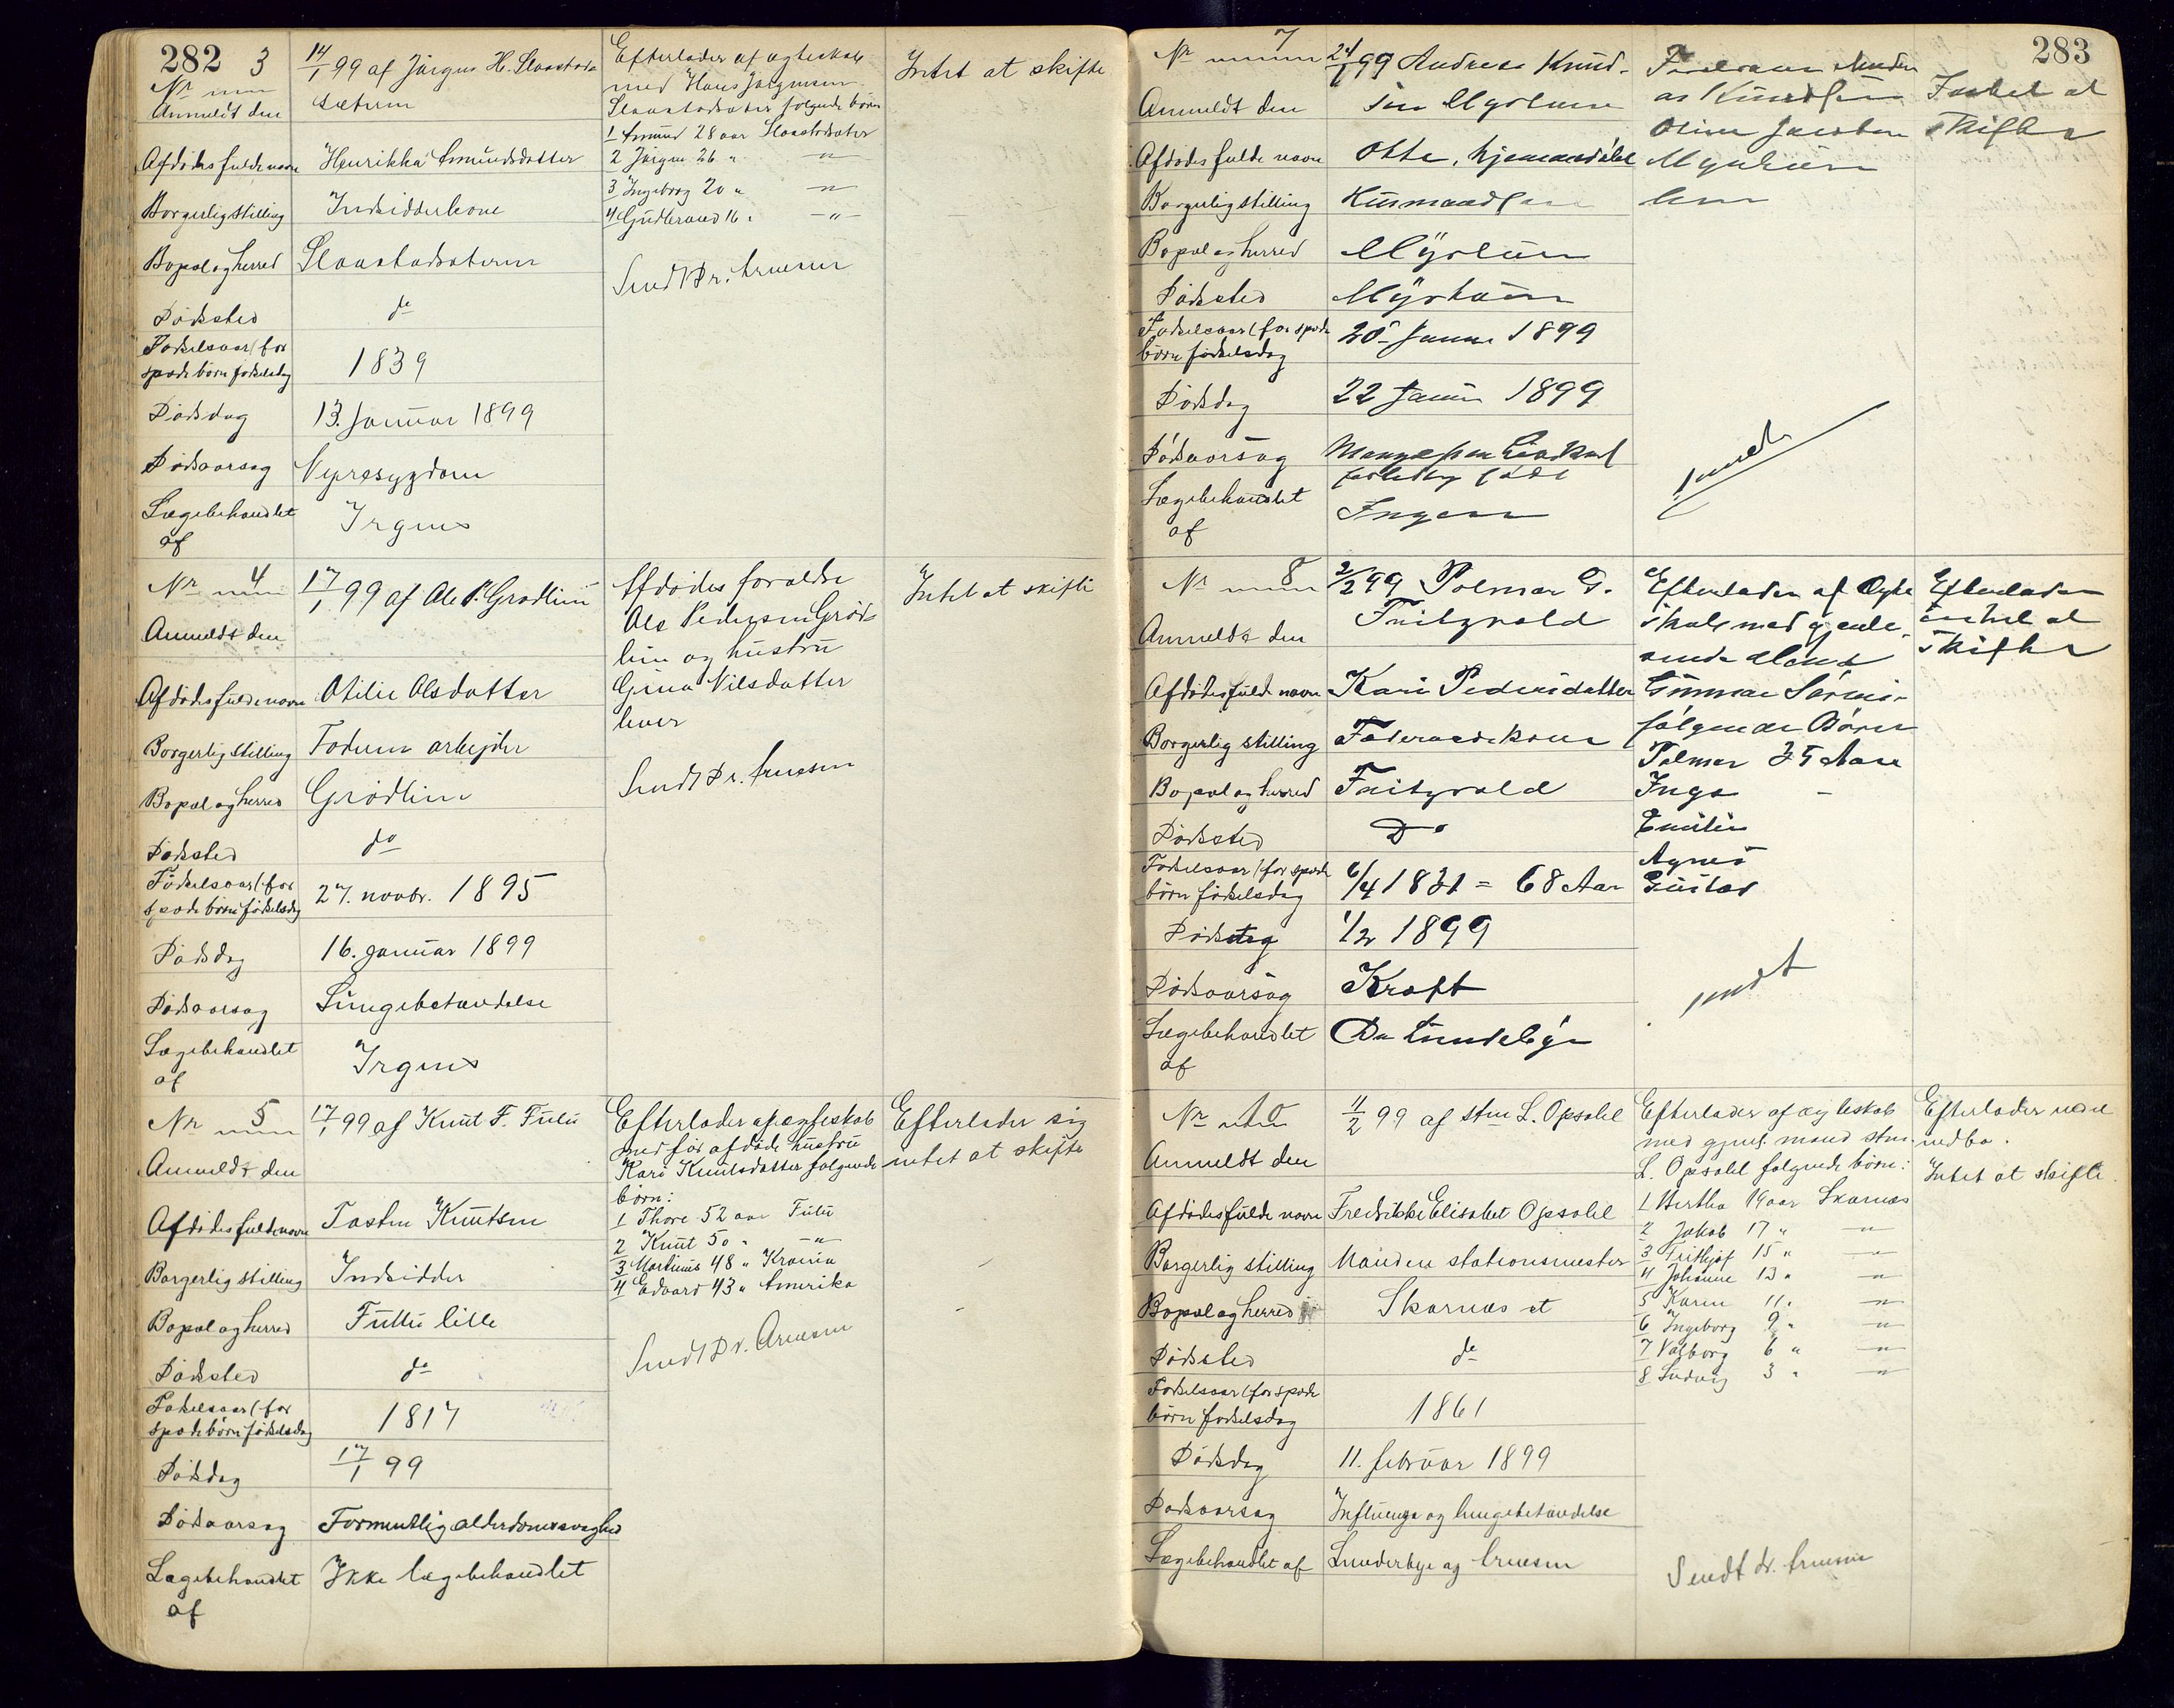 282 3
14/1 99 af Jørgen H. Slaastad-
sæteren
Nr
Anmeldt den
Afdødes fulde navn Henrikka Amundsdatter
Borgerlig stilling Indsidderkone
Bopæl og herred Slaastadsæteren
Dødssted do
Fødselsaar (for
spæde børn fødselsdag 1839
Dødsdag 13. Januar 1899
Dødsaarsag Nyresygdom
Lægebehandlet
af Irgens
Efterlader af ægteskab
med Hans Jørgensen
Slaastadsæter følgende børn
1 Amund 28 aar Slaastadsæter
2 Jørgen 26 " — " —
3 Ingeborg 20 " — " —
4 Gudbrand 16 " — " —
Sendt Dr. Arnesen
Intet at skifte
Nr 4
17/1 99 af Ole P. Grødlien
Anmeldt den
Afdødes fulde navn Otilie Olsdatter
Borgerlig stilling Faderen arbejder
Bopæl og herred Grødlien
Dødssted do
Fødselsaar (for
spæde børn fødselsdag 27. novbr. 1895
Dødsdag 16. januar 1899
Dødsaarsag Lungebetændelse
Lægebehandlet
af Irgens
Afdødes forældre
Ole Pedersen Grød-
lien og hustru
Gina Nilsdatter
lever
Sendt Dr. Arnesen
Intet at skifte
Nr 5
17/1 99 af Knut F. Fulu
Anmeldt den
Afdødes fulde navn Tosten Knutsen
Borgerlig stilling Indsidder
Bopæl og herred Fullu lille
Dødssted do
Fødselsaar (for
spæde børn fødselsdag 1817
Dødsdag 17/1 99
Dødsaarsag Formentlig alderdomssvaghed
Lægebehandlet
af Ikke lægebehandlet
Efterlader af ægteskab
med før afdøde hustru
Kari Knutsdatter følgende
børn:
1 Thore 52 aar Fulu
2 Knut 50 " — " —
3 Martinus 48 " Krania
4 Edvard 43 " Amerika
Sendt Dr. Arnesen
Efterlader sig
intet at skifte
283
Nr 7
24/1 99 Andreas Knud-
sen
Anmeldt den
Afdødes fulde navn Otto, hjemmedøbt
Borgerlig stilling Husmand
Bopæl og herred
Dødssted
Fødselsaar (for spæde
børn fødselsdag 20 Januar 1899
Dødsdag 22 Januar 1899
Dødsaarsag
Lægebehandlet
af Ingen
Forældrene
Knudsen
Oline Jacobsen
lever
sendt
Intet at
skifte
Nr 8
2/2 99 Palmar G.
Fritzvold
Anmeldt den
Afdødes fulde navn Kari Pedersdatter
Borgerlig stilling Føderaadskone
Bopæl og herred Fritzvold
Dødssted Do
Fødselsaar (for spæde
børn fødselsdag 6/4 1831 = 68 Aar
Dødsdag 1/2 1899
Dødsaarsag Kræft
Lægebehandlet
af Dr Lunderbye
Efterlader af Ægte
skab med gjenle-
vende Mand
Gunnar
følgende Børn
Palmar 35 Aar
Inga —
Emilie
Agnes
Gustav
sendt
Efterlader
intet at
skifte
Nr 10
11/2 99 af stm L. Opsahl
Anmeldt den
Afdødes fulde navn Fredrikke Elisabet Opsahl
Borgerlig stilling Manden stationsmester
Bopæl og herred Skarnæs st
Dødssted do
Fødselsaar (for spæde
børn fødselsdag 1861
Dødsdag 11. februar 1899
Dødsaarsag Influenza og lungebetændelse
Lægebehandlet af Lunderbye og Arnesen
Efterlader af ægteskab
med gjenl. mand stm.
L. Opsahl følgende børn:
1 Bertha 19 aar Skarnæs
2 Jakob 17 " — " —
3 Fritjof 15 " — " —
4 Johanne 13 " — " —
5 Karen 11 " — " —
6 Ingeborg 9 " — " —
7 Valborg 6 " — " —
8 Ludvig 3 " — " —
Sendt dr. Arnesen
Efterlader
Intet at skifte.